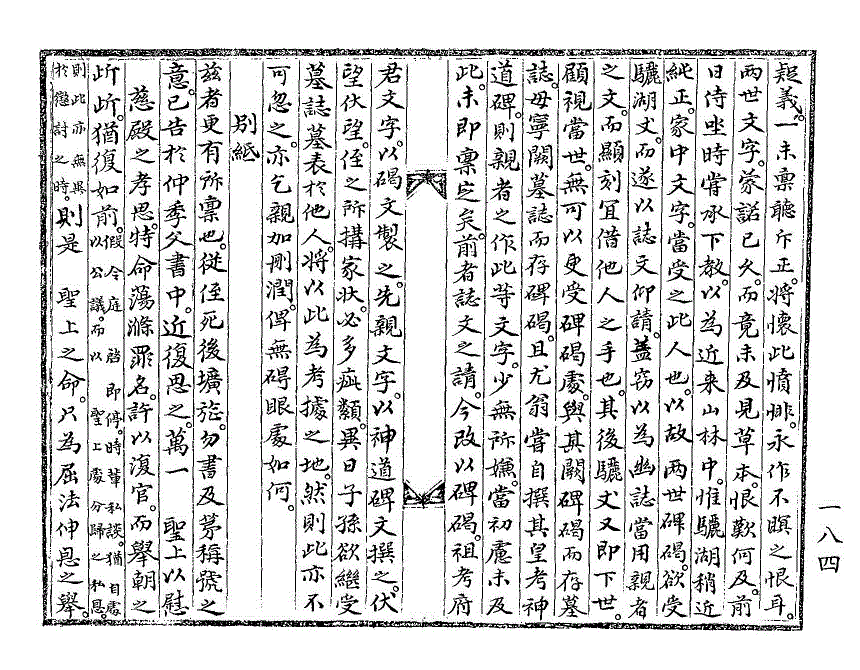 疑義一未稟聽斤正將懷此憤悱永作不瞑之恨耳
兩世文字蒙諾已久而竟未及見草本恨歎何及前
日侍坐時嘗承下教以為近来山林中惟驪湖稍近
純正家中文字當受之此人也以故兩世碑碣欲受
驪湖丈而遂以誌文仰請盖窃以為幽誌當用親者
之文而顯刻冝借他人之手也其後驪丈又即下世
顧視當世無可以更受碑碣處與其闕碑碣而存墓
誌毋寧闕墓誌而存碑碣且尤翁嘗自撰其皇考神
道碑則親者之作此等文字少無所嫌當初慮未及
此未即稟定矣前者誌文之請今改以碑碣祖考府
君文字以碣文製之先親文字以神道碑文撰之伏
望伏望侄之所搆家狀必多疵纇異日子孫欲繼受
墓誌墓表於他人將以此為考據之地然則此亦不
可忽之亦乞親加刪潤俾無碍眼處如何
別紙
玆者更有所稟也從侄死後壙誌勿書及茅稱號之
意已告於仲季父書中近復思之萬一 聖上以慰
慈殿之孝思特命蕩滌罪名許以復官而舉朝之
斤斤猶復如前假令庭 即停時輩私談猶目處
以公議而以 聖上處分歸之私恩
則此亦無異
於懲討之時則是 聖上之命只為屈法伸恩之舉
一八四